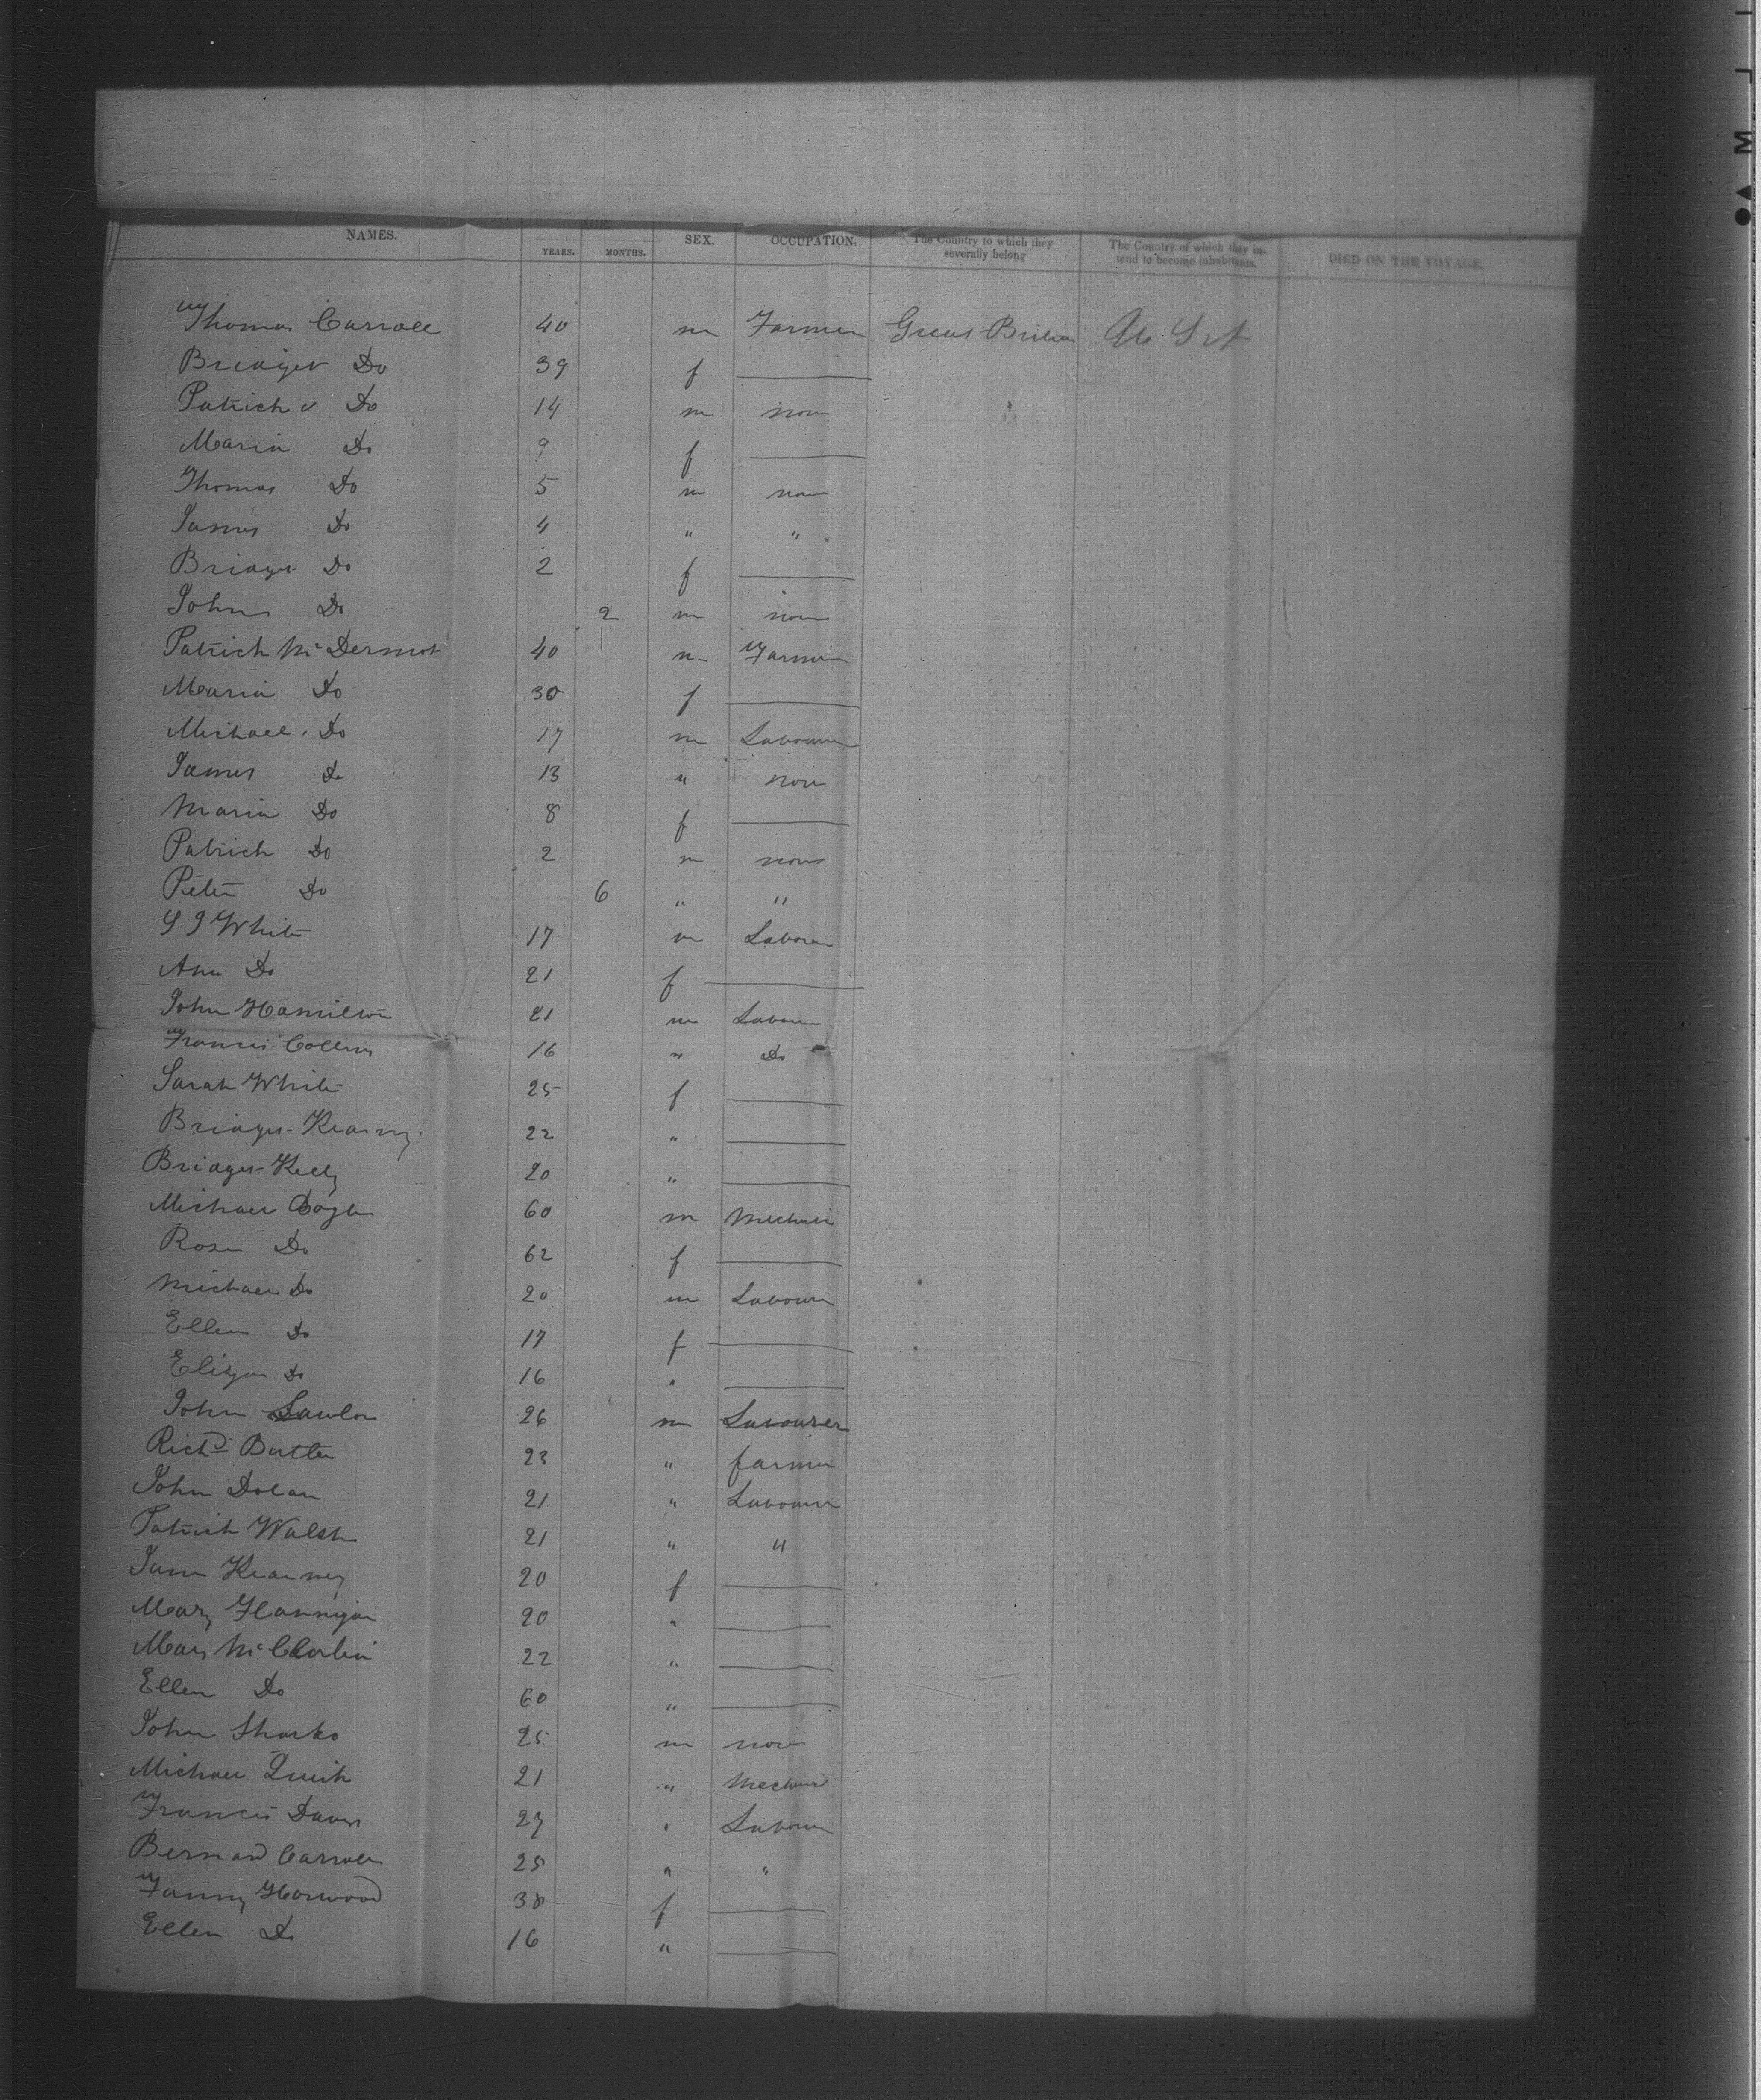 NAMES. AGE. YEARS. MONTHS. SEX. OCCUPATION. The Country to which they severally belong The Country of which they intend to become inhabitants. DIED ON THE VOYAGE.
Thomas Carroll 40 m Farmer Great Britain U S A
Bridget Do 39 f
Patrick Do 14 m none
Maria Do 9 f
Thomas Do 5 m none
James Do 4 " "
Bridget Do 2 f
John Do 2 m none
Patrick McDermot 40 m Farmer
Maria Do 30 f
Michael Do 17 m Labourer
James Do 13 " none
Maria Do 8 f
Patrick Do 2 m none
Peter Do 6 " "
White 17 m Labourer
Ann Do 21 f
John Hamilton 21 m Labourer
Francis Collins 16 " Do
Sarah White 25 f
Bridget Kearney 22 "
Bridget Kelly 20 "
Michael 60 m Mechanic
Rose Do 62 f
Michael Do 20 m Labourer
Ellen Do 17 f
Eliza Do 16 "
John Lawlor 26 m Labourer
Richd Butler 23 " farmer
John Dolan 21 " Labourer
Patrick Walsh 21 " "
Jane Kearney 20 f
Mary Flannigan 20 "
Mary 22 "
Ellen Do 60 "
John 25 m none
Michael Quirk 21 " Mechanic
Francis 27 " Labourer
Bernard Carroll 25 " "
Fanny Horwood 38 f
Ellen Do 16 "